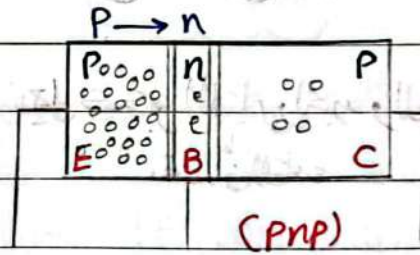 P → n
P n P
e
e
E B C
(pnp)